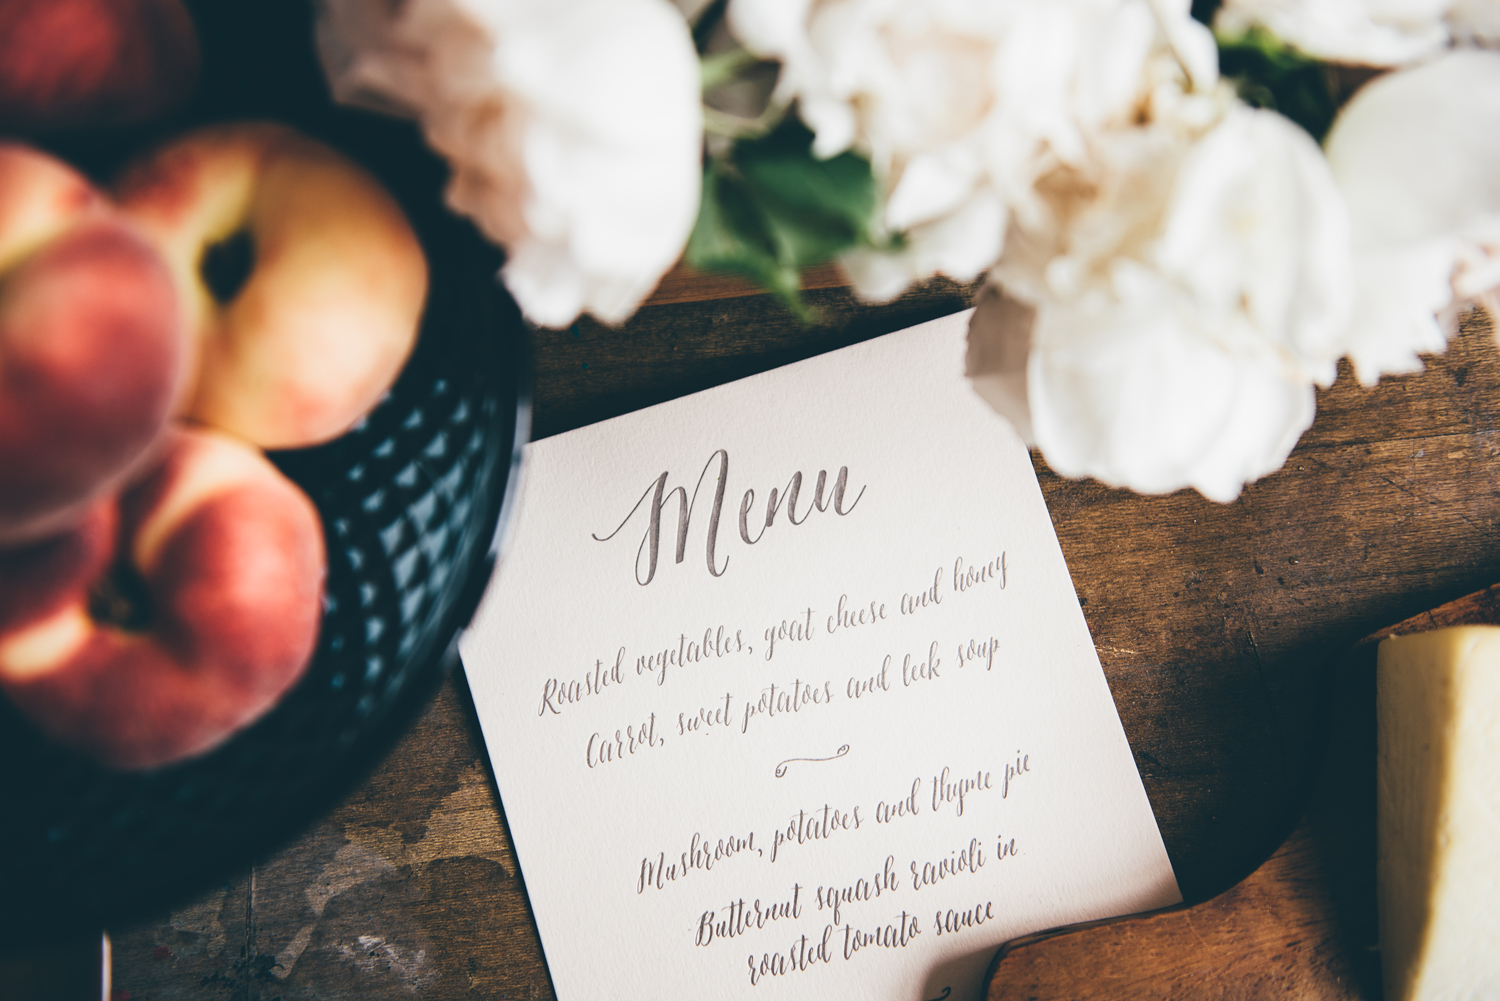 Menu
Roasted vegetables, goat cheese and honey
Carrot, sweet potatoes and leek soup
Mushroom, potatoes and thyme pie
Butternut squash ravioli in
roasted tomato sauce